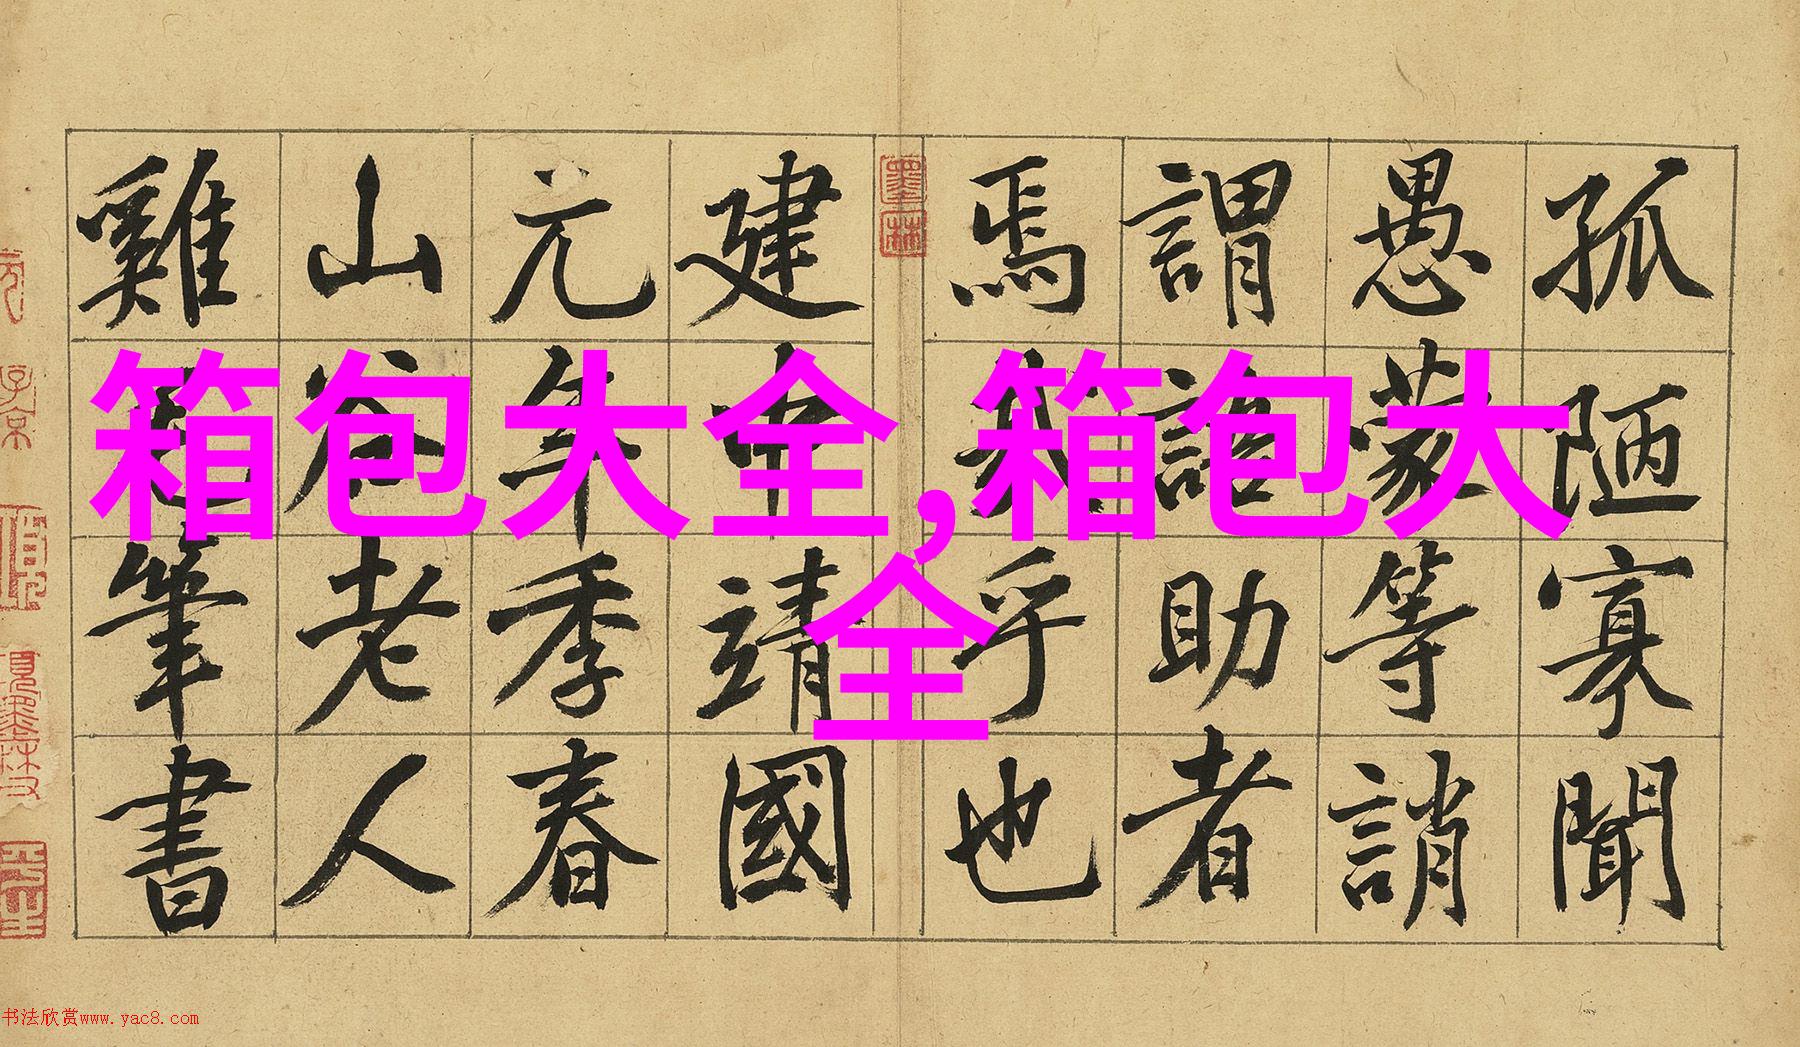 孤陋寡聞
愚蒙等誚
謂語助者
焉哉乎也
建中靖國
元年季春
山谷老人
雞筆書
箱包大全,箱包大
全
墨林
书法欣赏www.yac8.com